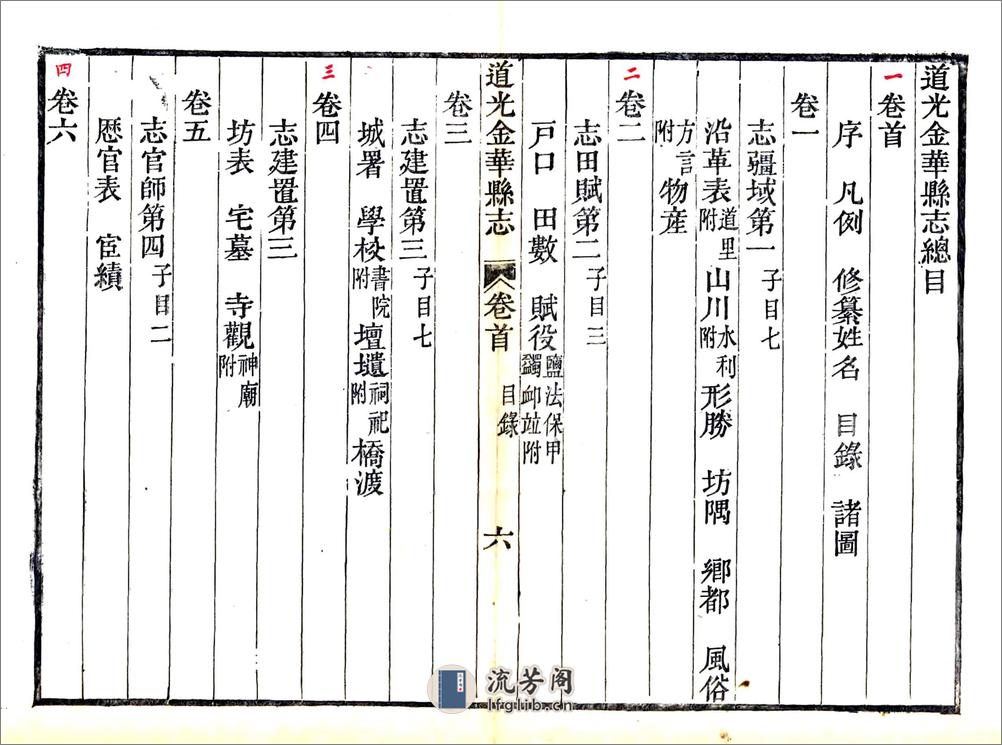 道光金華縣志總目
一 卷首
序 凡例 修纂姓名 目錄 諸圖
卷一
志疆域第一 子目七
沿革表 道里附 山川 水利附 形勝 坊隅 鄉都 風俗
方言附 物產
二 卷二
志田賦第二 子目三
戸口 田數 賦役 鹽法保甲蠲卹竝附
道光金華縣志 卷首 目錄 六
卷三
志建置第三 子目七
城署 學校 書院附 壇壝 祠祀附 橋渡
三 卷四
志建置第三
坊表 宅墓 寺觀 神廟附
卷五
志官師第四 子目二
歴官表 宦績
四 卷六
流芳阁
lfglib.cn